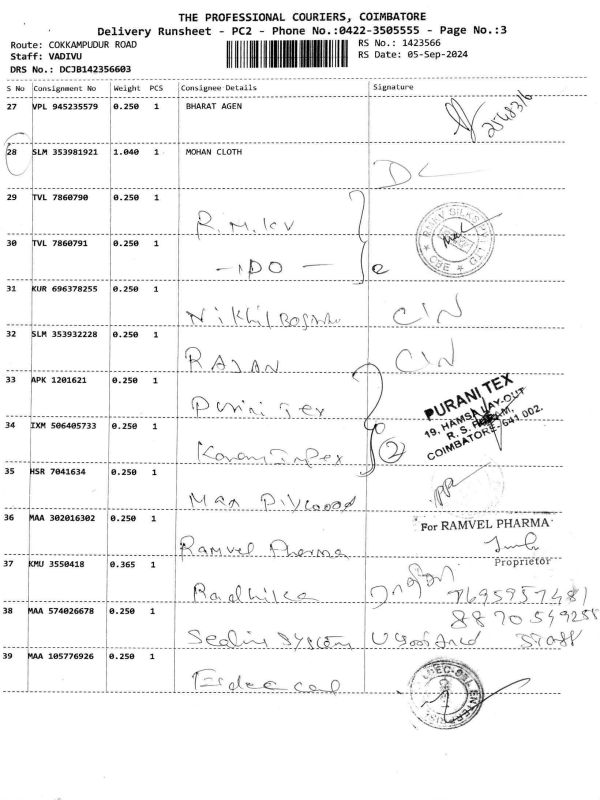 THE PROFESSIONAL COURIERS, COIMBATORE
Delivery Runsheet - PC2 - Phone No.:0422-3505555 - Page No.:3
Route: COKKAMPUDUR ROAD
Staff: VADIVU
DRS No.: DCJB142356603
RS No.: 1423566
RS Date: 05-Sep-2024
S No Consignment No Weight PCS Consignee Details Signature
27 VPL 945235579 0.250 1 BHARAT AGEN
28 SLM 353981921 1.040 1 MOHAN CLOTH DL
29 TVL 7860790 0.250 1 R.M.KV
30 TVL 7860791 0.250 1 -DO-
31 KUR 696378255 0.250 1 Nikhil CIN
32 SLM 353932228 0.250 1 RAJAN CIN
33 APK 1201621 0.250 1 Tex
PURANI TEX
19, HAMSA LAY-OUT
R. S.
COIMBATORE - 641 002.
34 IXM 506405733 0.250 1 2
35 HSR 7041634 0.250 1
36 MAA 302016302 0.250 1 Ramvel Pharma
For RAMVEL PHARMA
Proprietor
37 KMU 3550418 0.365 1 Radhika 7695957481
38 MAA 574026678 0.250 1 System
39 MAA 105776926 0.250 1